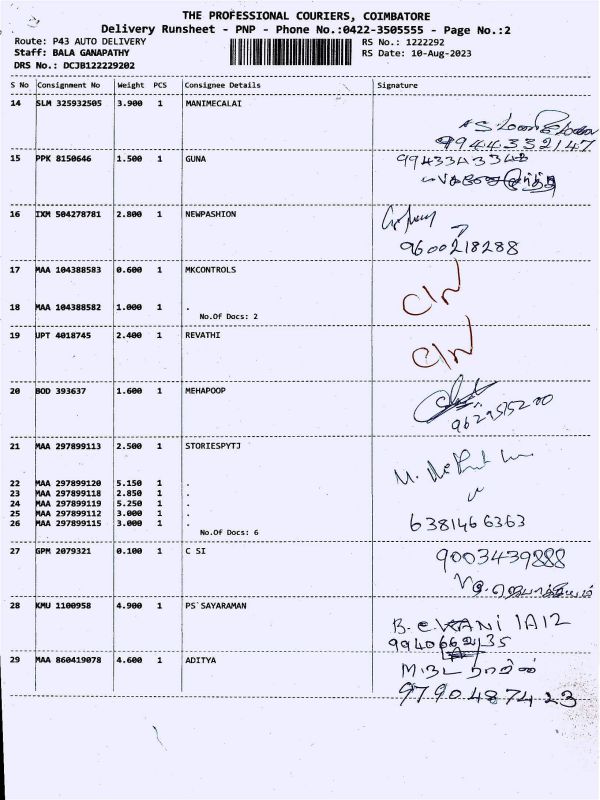 THE PROFESSIONAL COURIERS, COIMBATORE
Delivery Runsheet - PNP - Phone No.:0422-3505555 - Page No.:2
Route: P43 AUTO DELIVERY
RS No.: 1222292
Staff: BALA GANAPATHY
RS Date: 10-Aug-2023
DRS No.: DCJB122229202
S No Consignment No Weight PCS Consignee Details Signature
14 SLM 325932505 3.900 1 MANIMECALAI
9944332147
15 PPK 8150646 1.500 1 GUNA
16 IXM 504278781 2.800 1 NEWPASHION
9600218288
17 MAA 104388583 0.600 1 MKCONTROLS
C/N
18 MAA 104388582 1.000 1 .
No.Of Docs: 2
19 UPT 4018745 2.400 1 REVATHI
C/N
20 BOD 393637 1.600 1 MEHAPOOP
21 MAA 297899113 2.500 1 STORIESPYTJ
22 MAA 297899120 5.150 1 .
23 MAA 297899118 2.850 1 .
24 MAA 297899119 5.250 1 .
25 MAA 297899112 3.000 1 .
26 MAA 297899115 3.000 1 .
6381466363
No.Of Docs: 6
27 GPM 2079321 0.100 1 C SI
9003439888
28 KMU 1100958 4.900 1 PS`SAYARAMAN
29 MAA 860419078 4.600 1 ADITYA
9790487423